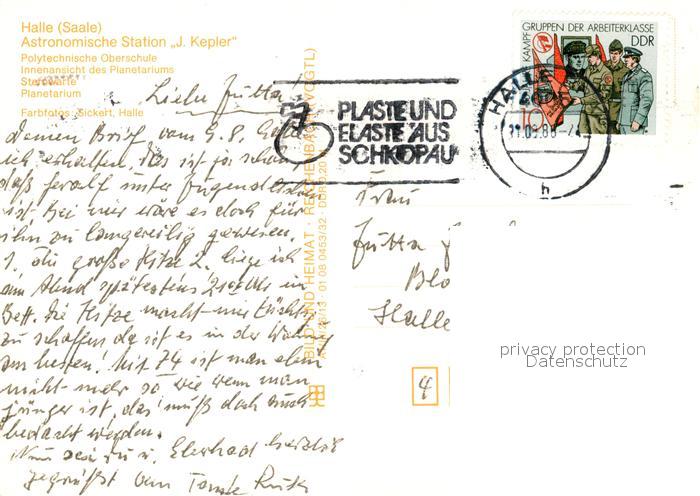 Halle (Saale)
Astronomische Station „J. Kepler"
Polytechnische Oberschule
Innenansicht des Planetariums
Sternwarte
Planetarium
Farbfotos: Sickert, Halle
Liebe Jutta!
Deinen Brief vom 9.8. habe
ich erhalten. Das ist ja schön
daß Gerolf unter Jugendlichen
ist. Bei mir wäre es doch für
ihn zu langweilig gewesen.
1. die große Hitze 2. liege ich
am Abend spätestens 21 Uhr im
Bett. Die Hitze macht mir tüchtig
zu schaffen da ist es in der Wohnung
am besten! Mit 74 ist man eben
nicht mehr so wie wenn man
jünger ist, das muß doch auch
bedacht werden.
Nun sei Du u. Eberhard herzlich
gegrüßt von Tante
BILD UND HEIMAT · REICHENBACH (VOGTL)
01 08 0453/32
PLASTE UND
ELASTE AUS
SCHKOPAU
HALLE
h
KAMPFGRUPPEN DER ARBEITERKLASSE
DDR
10
Frau
Jutta
Halle
4
privacy protection
Datenschutz